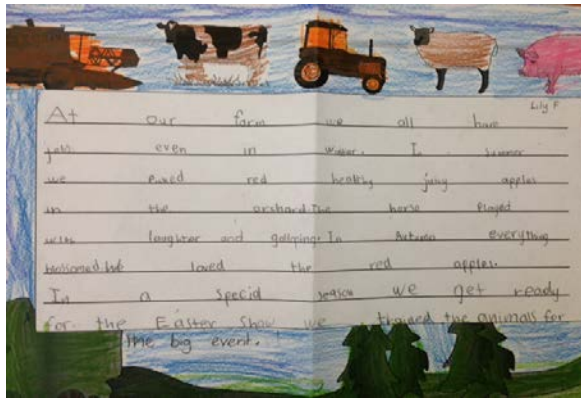 Lily F
At our farm we all have
jobs even in winter. In summer
we picked red healthy juicy apples
in the orchard. The horse played
with laughter and galloping. In Autumn everything
blossomed. We loved the red apples.
In a special season we get ready
for the Easter Show we trained the animals for
the big event.